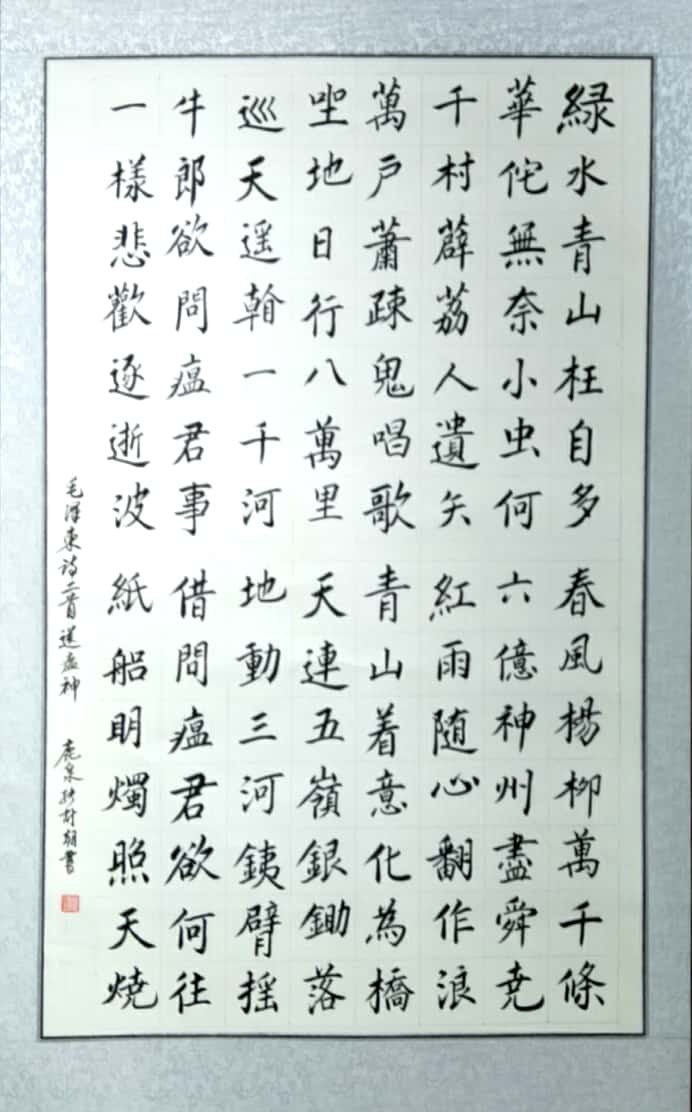 緑水青山枉自多
華佗無奈小虫何
千村薜荔人遺矢
萬户蕭疎鬼唱歌
坐地日行八萬里
巡天遥翰一千河
牛郎欲問瘟君事
一樣悲歡逐逝波
春風楊柳萬千條
六億神州盡舜尭
紅雨随心翻作浪
青山着意化為橋
天連五嶺銀鋤落
地動三河銕臂摇
借問瘟君欲何往
紙船明燭照天燒
毛泽東诗二首送瘟神 鹿泉書